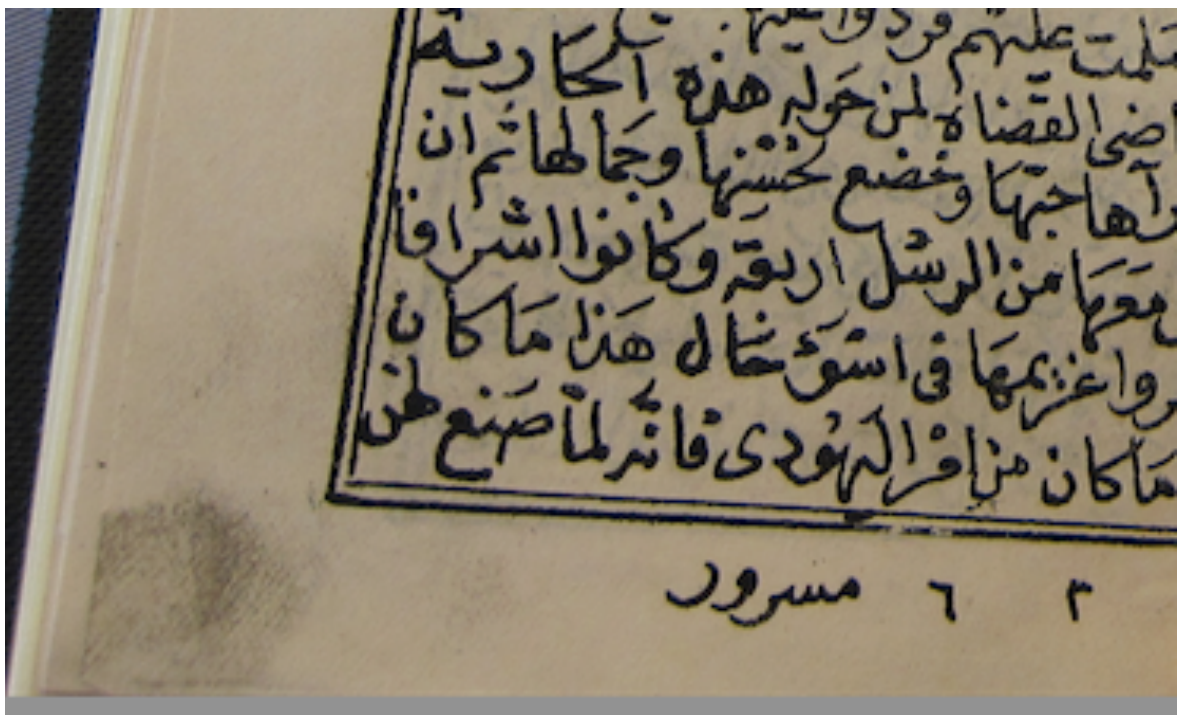 سلمت عليهم فردوا عليها
اضى القضاة لمن حوله هذه الجارية
حاجتها وخضع لحسنها وجمالها ثم ان
معها من الرسل اربعة وكانوا اشرافا
روا غريمها فى اسوء حال هذا ما كان
ما كان من امر اليهودى فانه لما صنع لهن
٣ ٦ مسرور